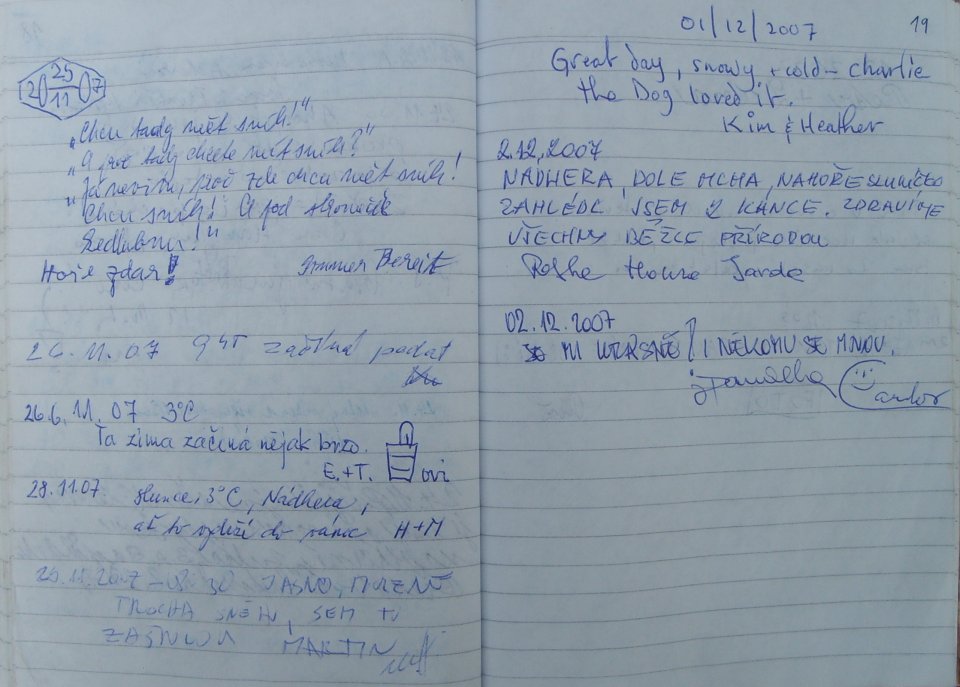 20 25/11 07
„Chci tady mít sníh!"
„A proč tady chcete mít sníh?"
„Já nevím, proč zde chci mít sníh!
Chci sníh! A pod stromeček
Hoře zdar! Immer Bereit
26.11.07 9 45 začíná padat
26.6. 11. 07 3°C
Ta zima začíná nějak brzo.
E.+T. ovi
28.11.07 slunce, 3°C, Nádhera,
ať to vydrží do vánoc H+M
JASNO,
TROCHA SNĚHU, SEM TI
MARTIN
19
01/12/2007
Great day, snowy + cold – Charlie
the Dog loved it.
Kim & Heather
2.12.2007
NÁDHERA, DOLE MLHA, NAHOŘE SLUNÍČKO
ZAHLÉDL JSEM 2 KANCE. ZDRAVÍME
VŠECHNY BĚŽCE PŘÍRODOU
Jarda
02.12.2007
JE MI KRÁSNĚ! I NĚKOMU SE MNOU.